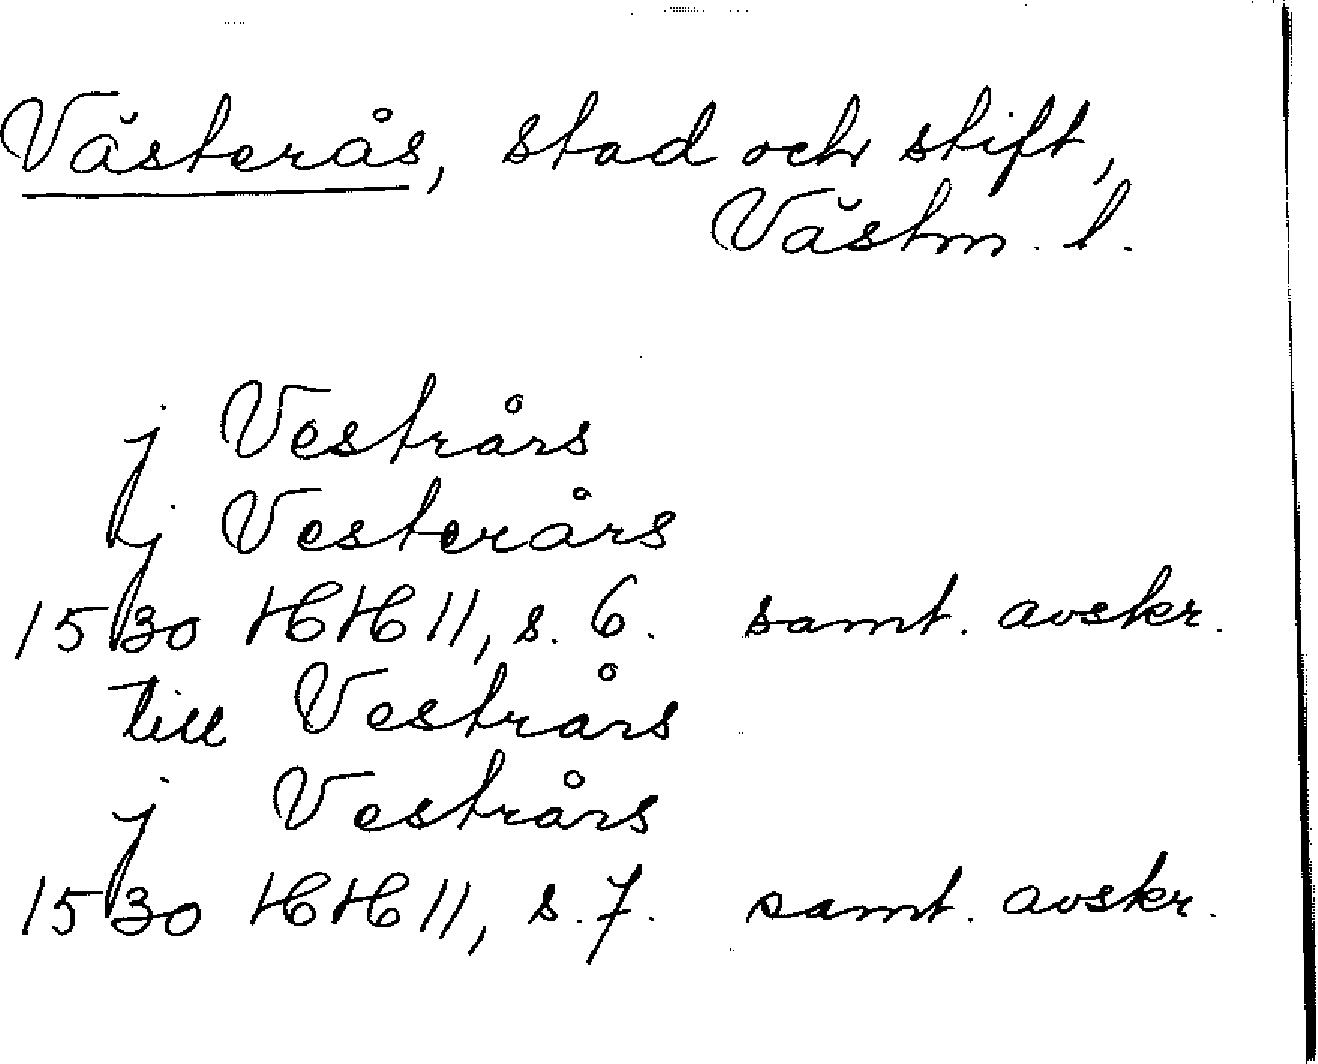 Västerås, stad och stift,
Västm. l.
j Vestrårs
j Vesterårs
1530 HH 11, s. 6. samt. avskr.
till Vestrårs
j Vestrårs
1530 HH 11, s. 7. samt. avskr.